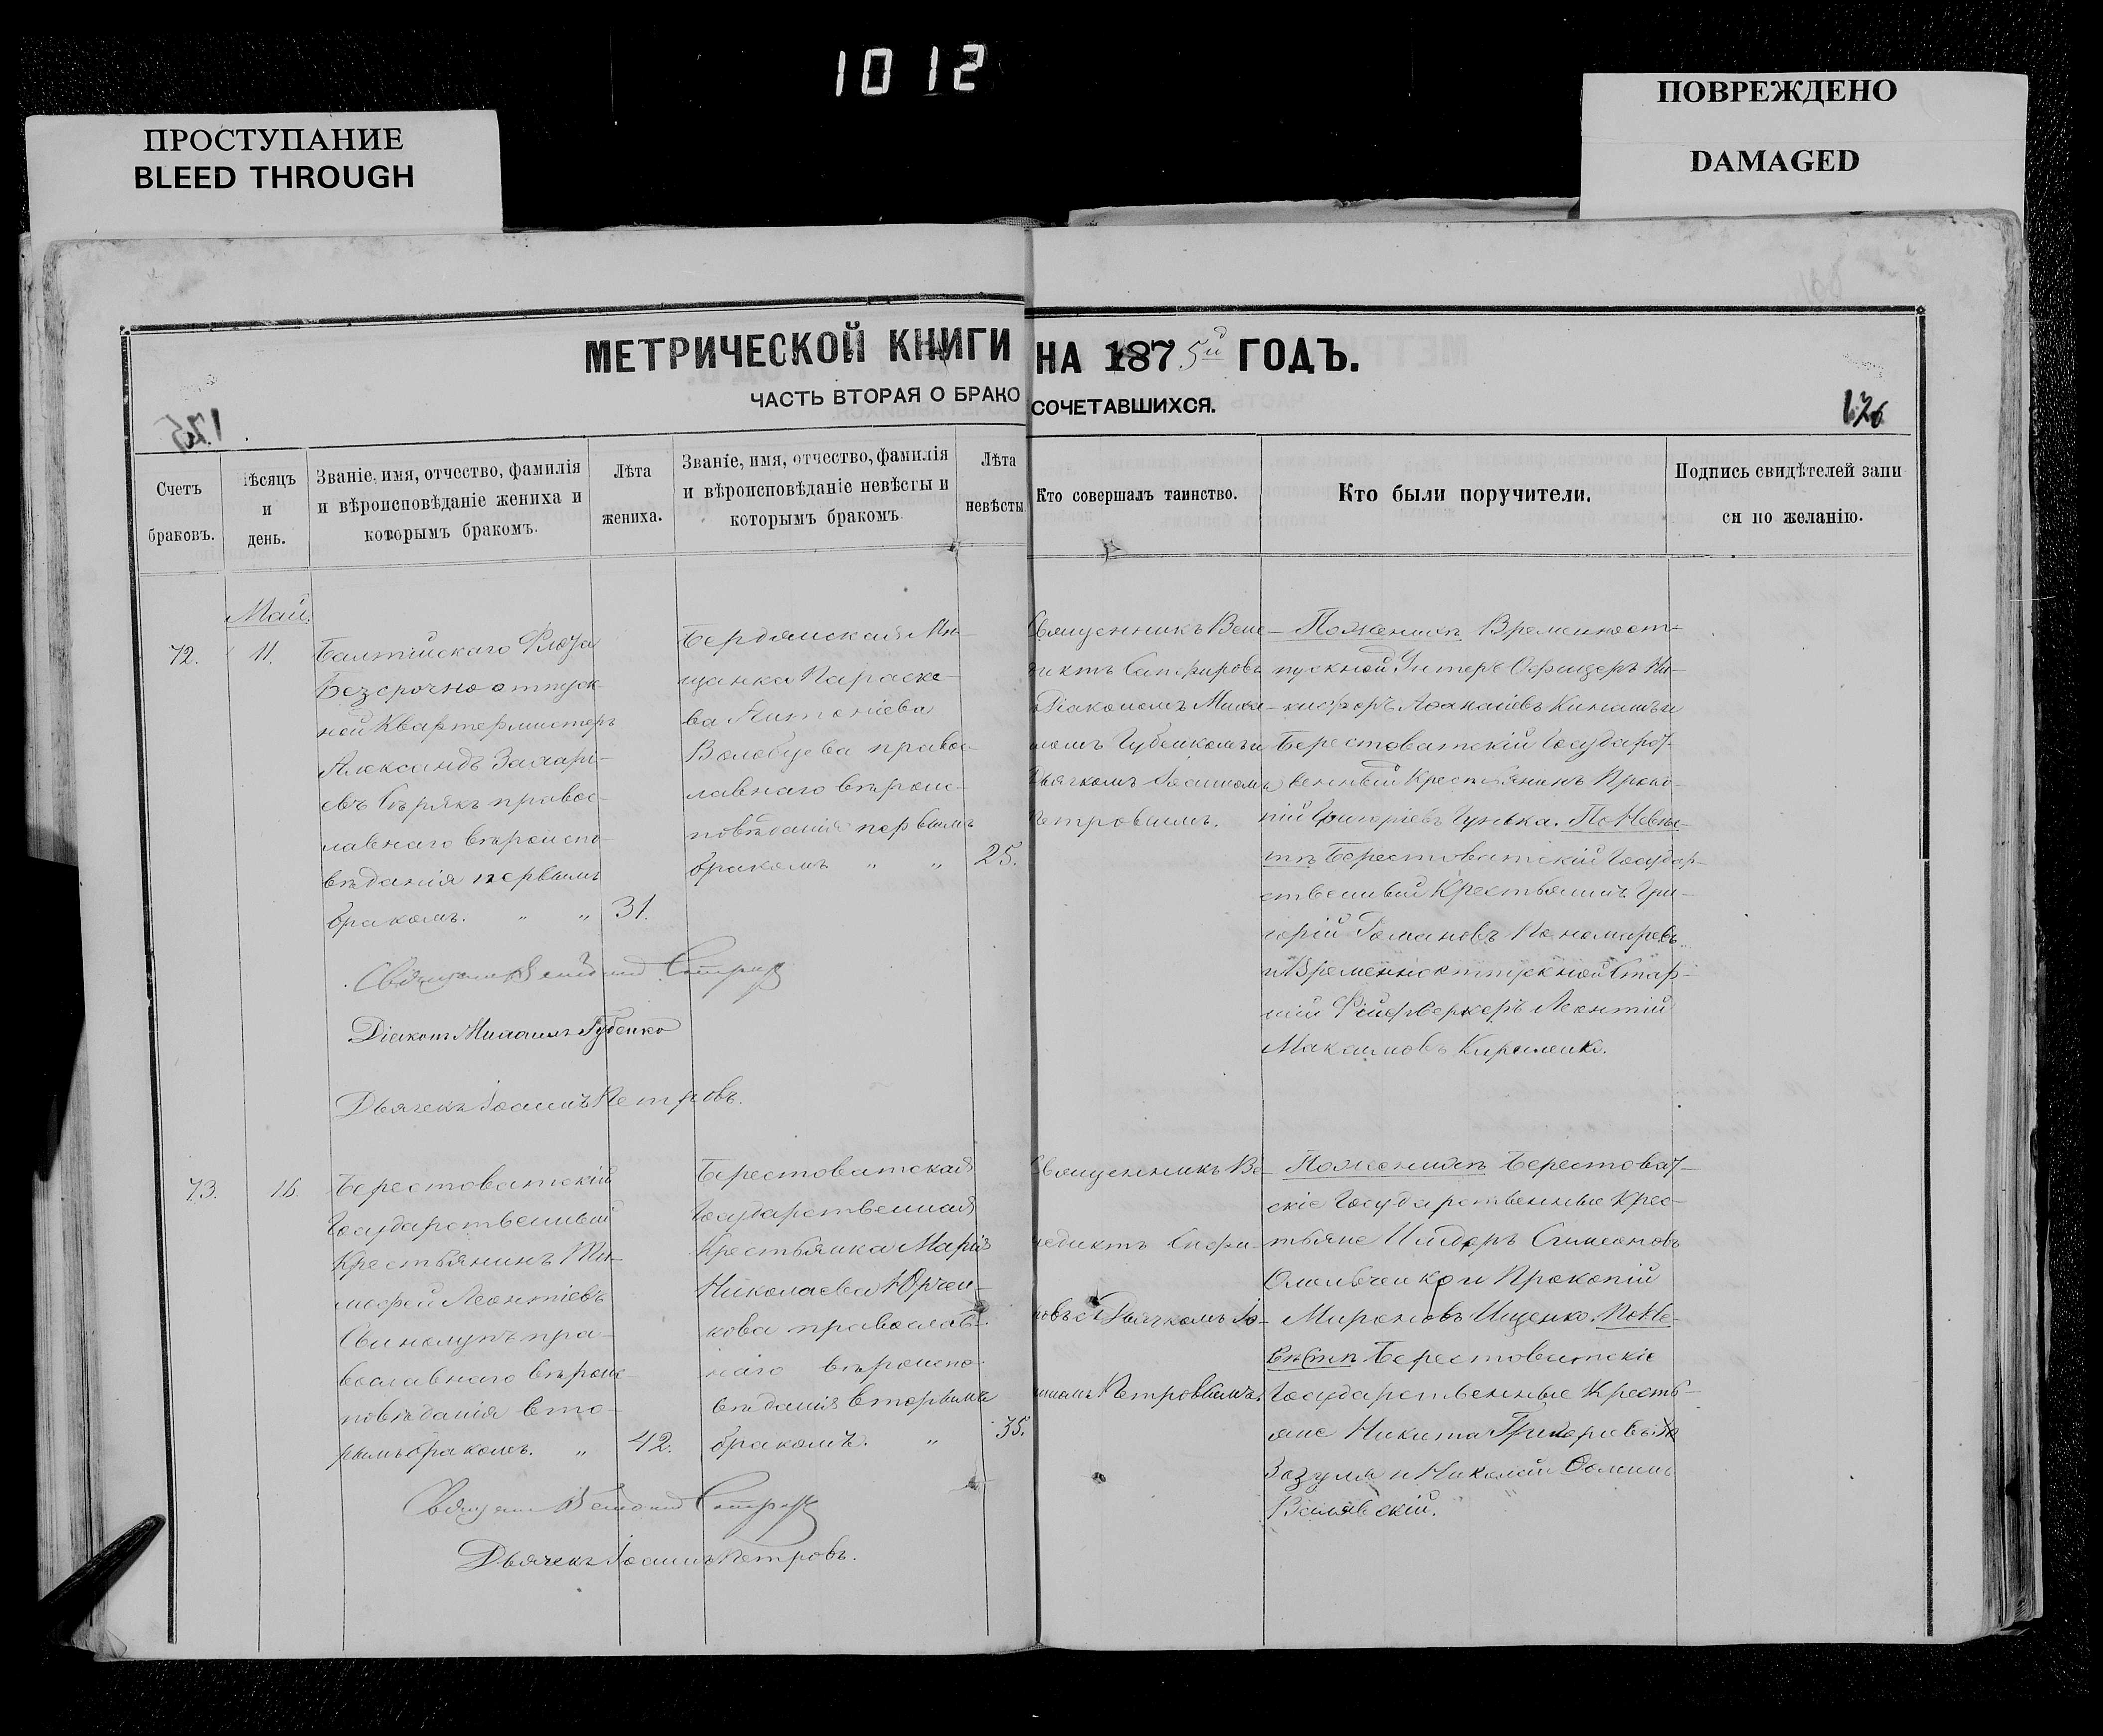 10 12
ПРОСТУПАНИЕ
BLEED THROUGH
ПОВРЕЖДЕНО
DAMAGED
МЕТРИЧЕСКОЙ КНИГИ НА 1875й ГОДЪ.
ЧАСТЬ ВТОРАЯ О БРАКОСОЧЕТАВШИХСЯ.
125
126
Счетъ
браковъ.
мѣсяцъ
и
день.
Званіе, имя, отчество, фамилія
и вѣроисповѣданіе жениха и
которымъ бракомъ.
Лѣта
жениха.
Званіе, имя, отчество, фамилія
и вѣроисповѣданіе невѣсты и
которымъ бракомъ.
Лѣта
невѣсты.
Кто совершалъ таинство.
Кто были поручители.
Подпись свидѣтелей запи
си по желанію.
Май.
72.
11.
Балтійскаго Флота
Безсрочноотпуск-
ной Квартермистеръ
Александъ Захарі-
евъ Сърякъ правос-
лавнаго вѣроиспо-
вѣданія первымъ
бракомъ. " " 31.
Бердянская Мѣ-
щанка Параске-
ва Антоніева
Волобуева правос-
лавнаго вѣроис-
повѣданія первымъ
бракомъ " " 25.
Священникъ Вене-
диктъ Сапфировъ
съ Діакономъ Миха-
иломъ Губенкомъ и
Дьячкомъ Іоанномъ
Петровымъ.
По женихѣ Временноот-
пускной Унтеръ Офицеръ Ни-
кифоръ Аѳанасіевъ Кинашъ и
Берестоватскій Государст-
венный Крестьянинъ Проко-
пій Григоріевъ Гунька. По Невѣс-
тѣ Берестоватскій Государ-
ственный Крестьянинъ Гри-
горій Романовъ Пономаревъ
и Временноотпускной Стар-
шій Фейерверкеръ Леонтій
Максимовъ Кириленко.
Священникъ Венедиктъ Сапфировъ
Діаконъ Михаилъ Губенко
Дьячекъ Іоаннъ Петровъ.
73.
16.
Берестоватскій
Государственный
Крестьянинъ Ти-
мофей Леонтіевъ
Свинолупъ пра-
вославнаго вѣроис-
повѣданія вто-
рымъ бракомъ. " 42.
Берестоватская
Государственная
Крестьянка Марія
Николаева Юрчен-
кова православ-
наго вѣроиспо-
вѣданія вторымъ
бракомъ. " 35.
Священникъ Ве-
недиктъ Сапфи-
ровъ съ Дьячкомъ Іо-
анномъ Петровымъ.
По женихѣ Берестоват-
скіе Государственные Крес-
тьяне Исидоръ Симеоновъ
Омельченко и Прокопій
Мироновъ Ищенко. По Не-
вѣстѣ Берестоватскіе
Государственные Кресть-
яне Никита Григорievъ
Зозуля и Николай Ѳоминъ
Вілявскій.
Священникъ Венедиктъ Сапфировъ
Дьячекъ Іоаннъ Петровъ.